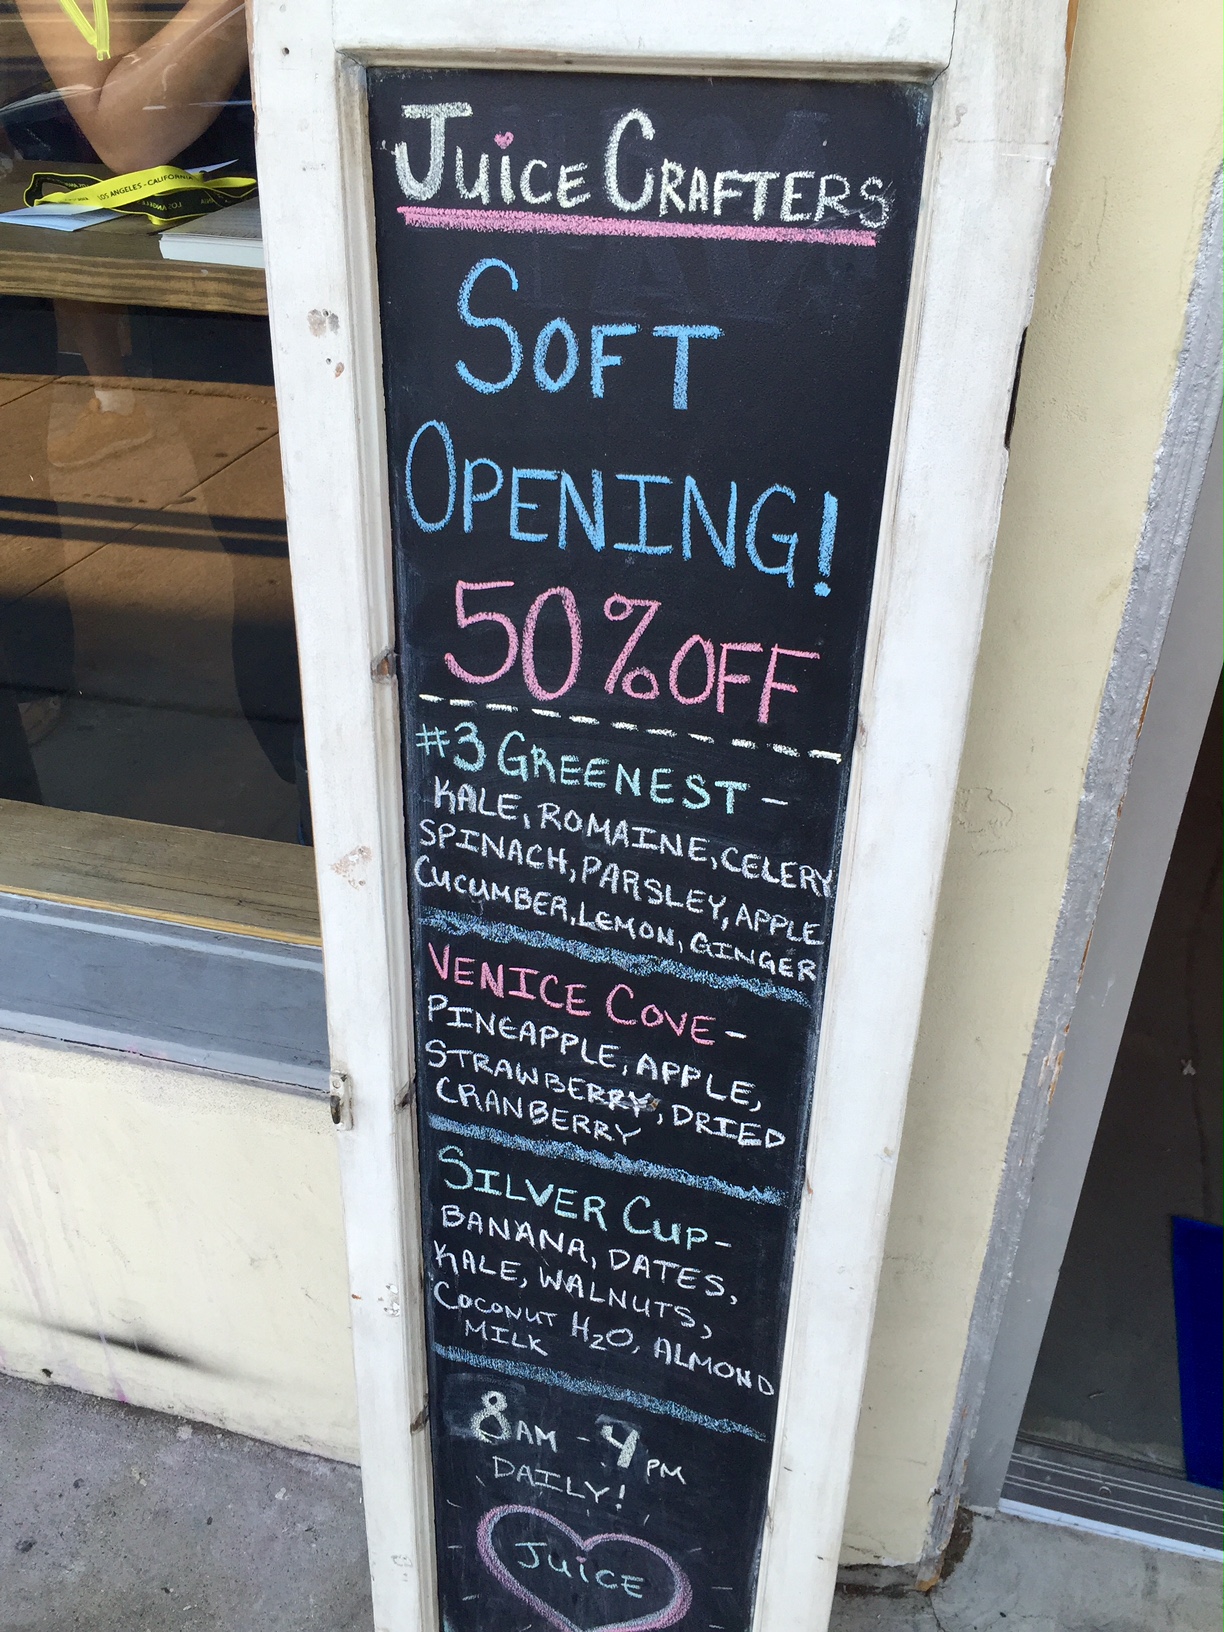 LOS ANGELES - CALIFORNIA
JUiCE CRAFTERS
SOFT
OPENING!
50% OFF
#3 GREENEST -
KALE, ROMAINE, CELERY
SPINACH, PARSLEY, APPLE
CUCUMBER, LEMON, GINGER
VENICE COVE -
PINEAPPLE, APPLE,
STRAWBERRY, DRIED
CRANBERRY
SILVER CUP -
BANANA, DATES,
KALE, WALNUTS,
COCONUT H2O, ALMOND
MILK
8AM - 9PM
DAILY!
JUiCE